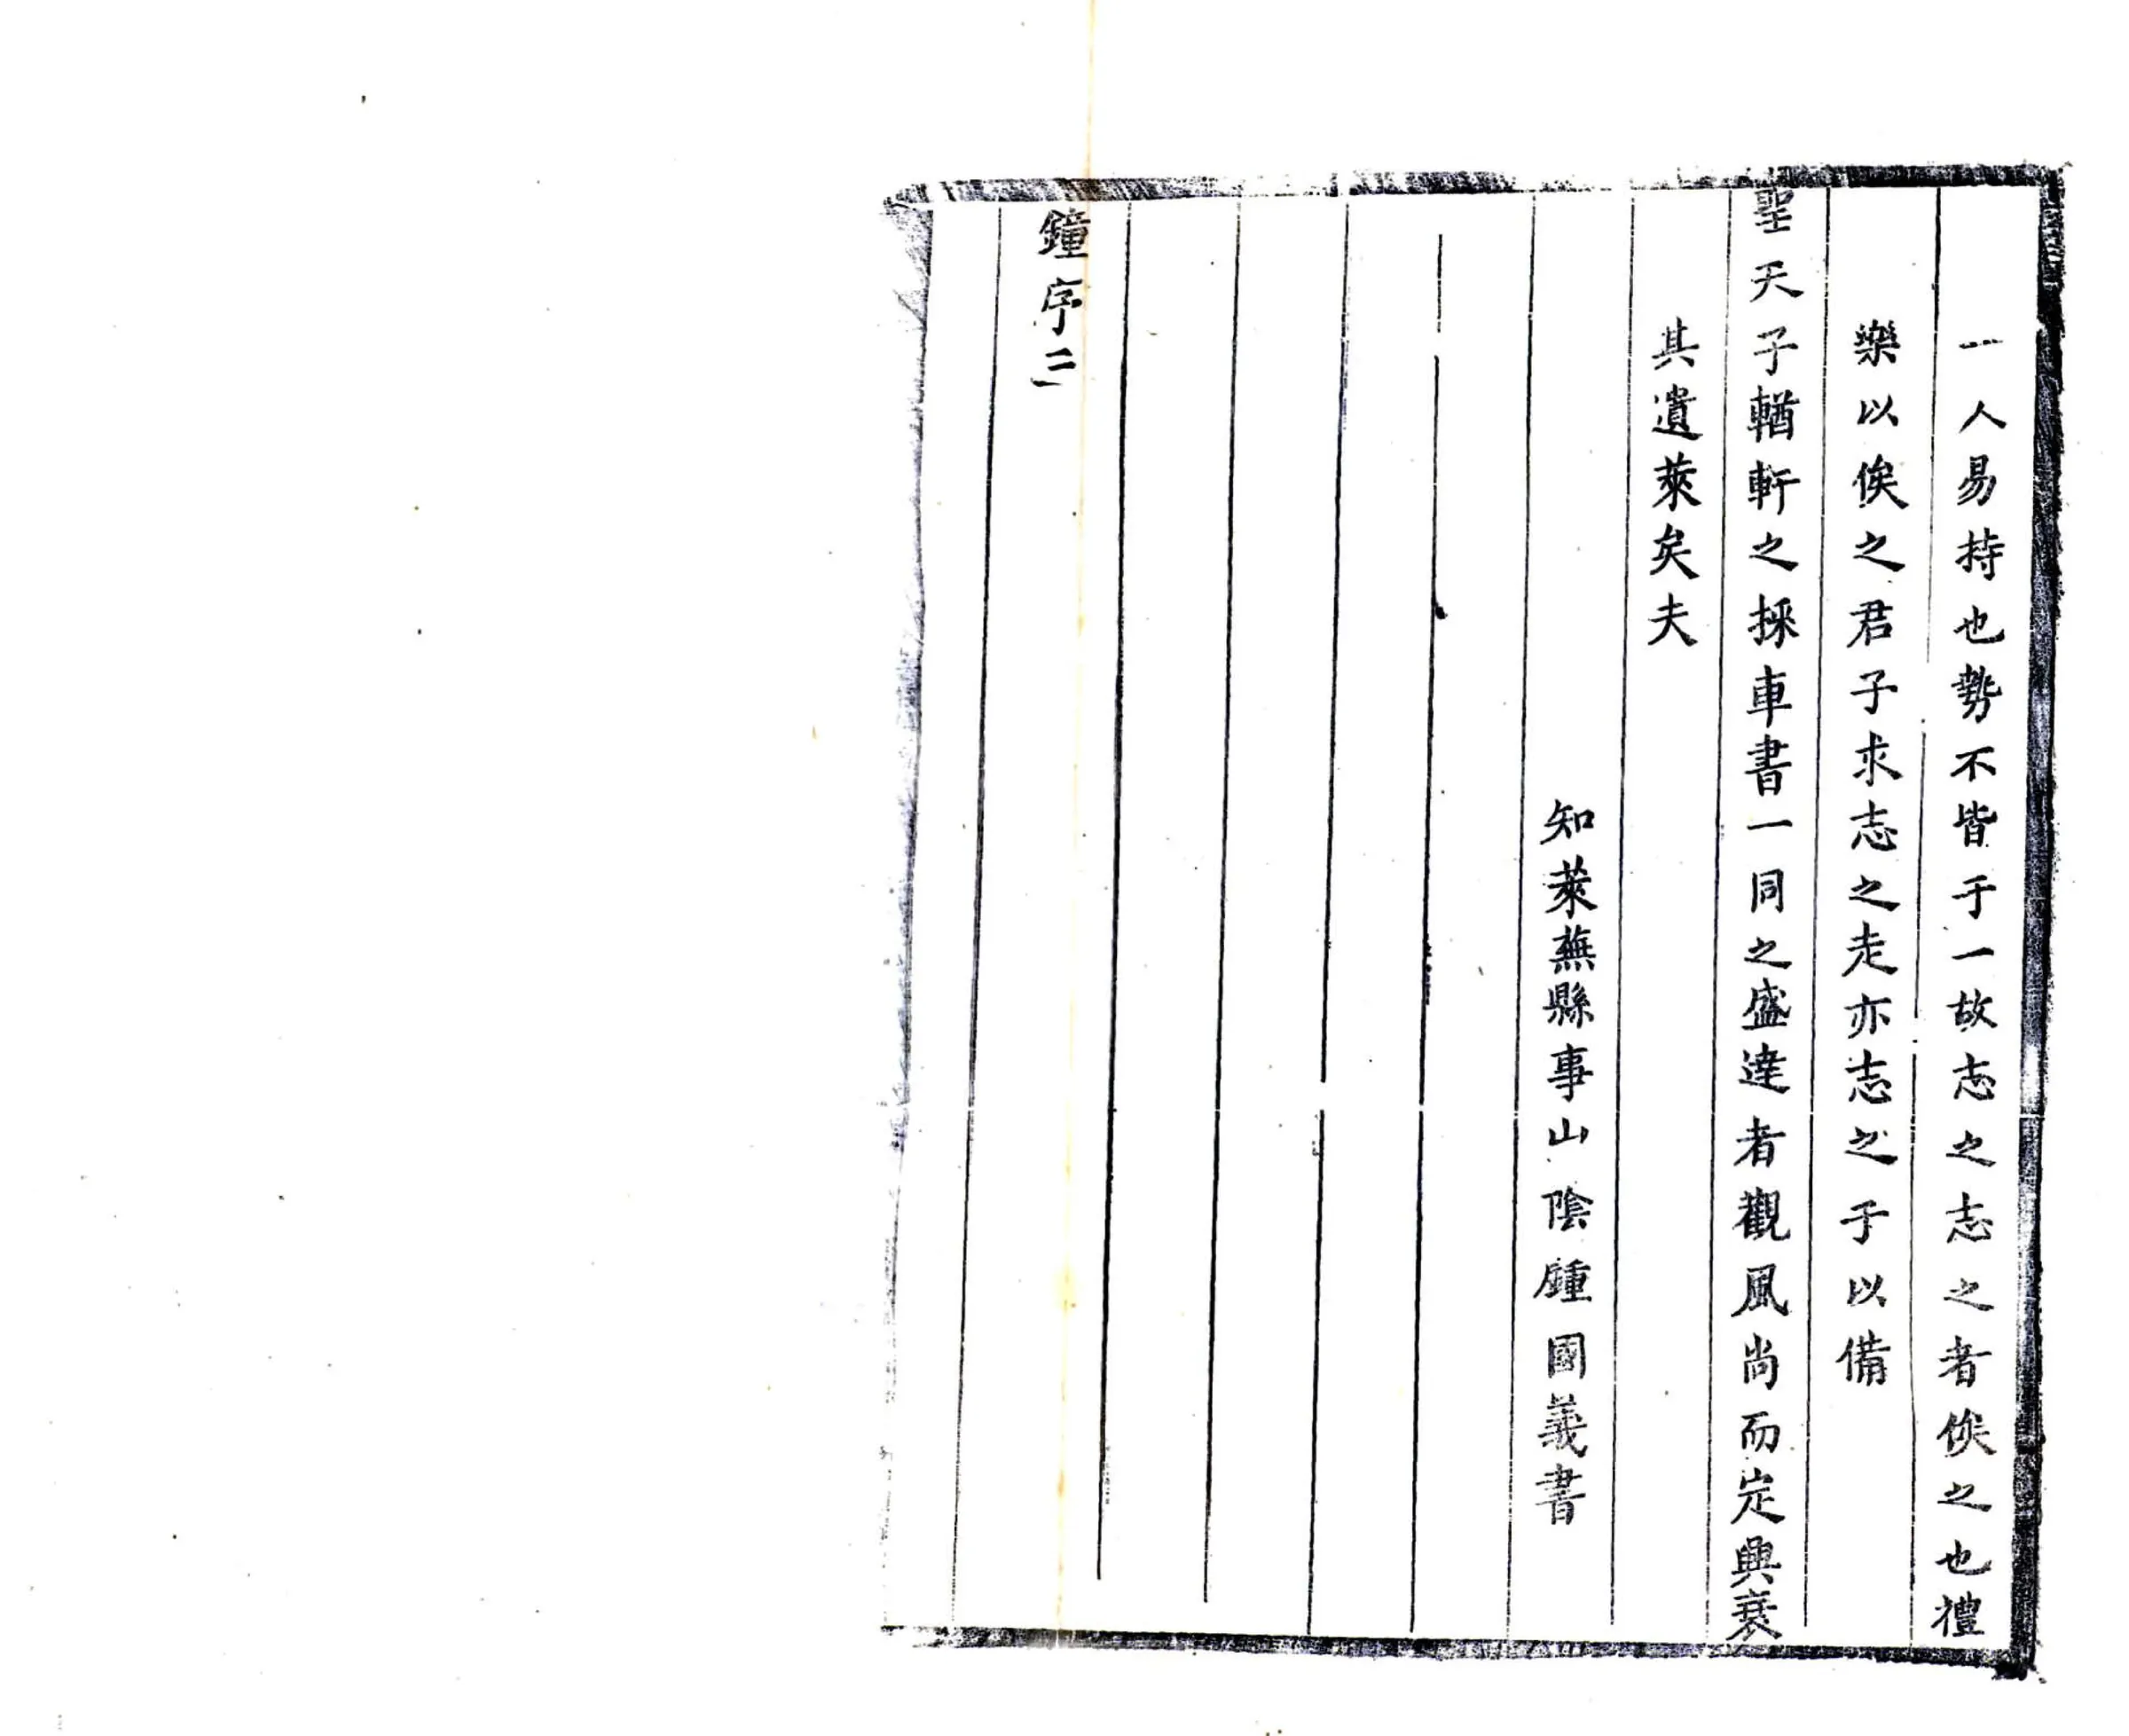 一人易持也勢不皆于一故志之志之者俟之也禮
樂以俟之君子求志之走亦志之于以備
聖天子輶軒之採車書一同之盛達者觀風尚而定興衰
其遺萊矣夫
知萊蕪縣事山陰鍾國義書
鐘序二